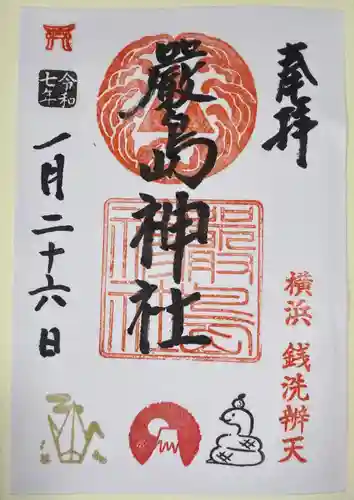 奉拝
嚴島神社
嚴島
神社
令和
七年
一月二十六日
横浜 銭洗辨天